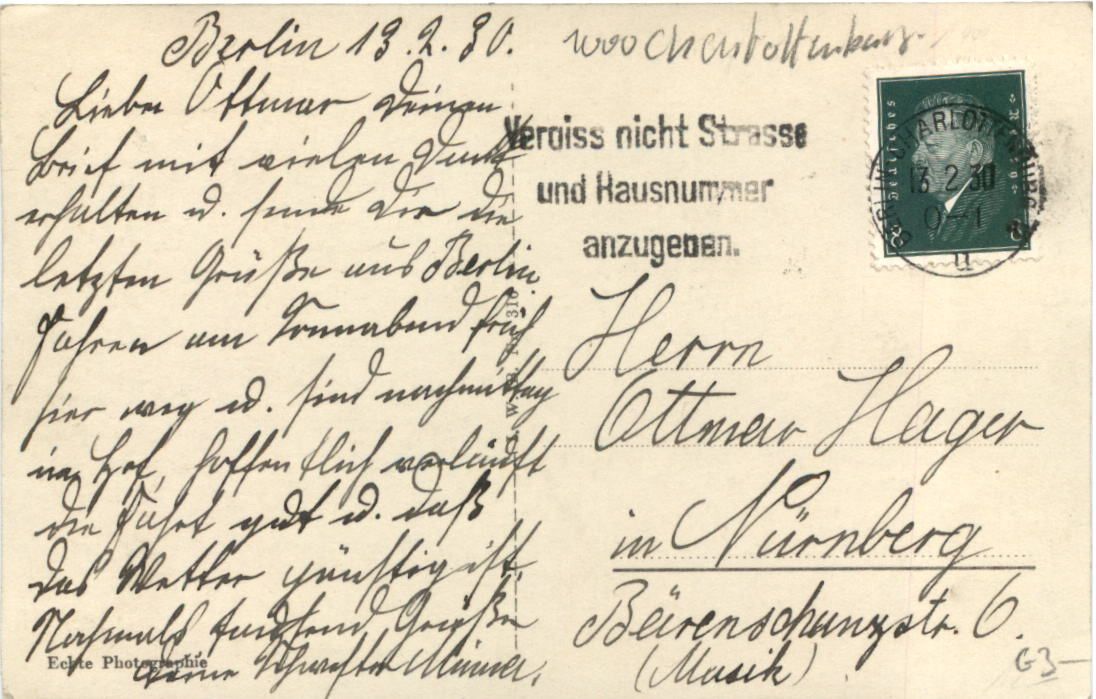 Berlin 13.2.30.
Lieber Ottmar Deinen
Brief mit vielen Dank
erhalten u. sende Dir die
letzten Grüße aus Berlin.
Fahren am Sonnabend früh
hier weg u. sind nachmittag
in Hof, hoffentlich verläuft
die Fahrt gut u. daß
das Wetter günstig ist.
Nochmals tausend Grüße
Deine Schwester Minna.
Echte Photographie
1000 Charlottenburg.
Vergiss nicht Strasse
und Hausnummer
anzugeben.
Deutsches Reich
8 8
BERLIN-CHARLOTTENBURG
13.2.30
0-1
Herrn
Ottmar Hager
in Nürnberg
Bärenschanzstr. 6.
(Musik)
G3-